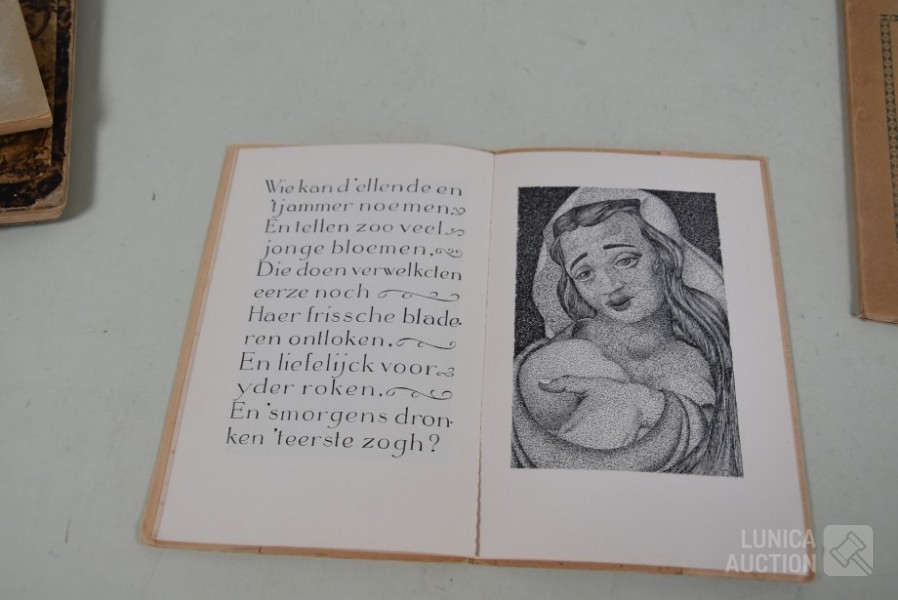 Wie kan d'ellende en
'tjammer noemen
En tellen zoo veel
jonge bloemen.
Die doen verwelkcten
eerze noch
Haer frissche blade-
ren ontloken.
En liefelijck voor
yder roken.
En 'smorgens dron-
ken 'teerste zogh?
LUNICA
AUCTION